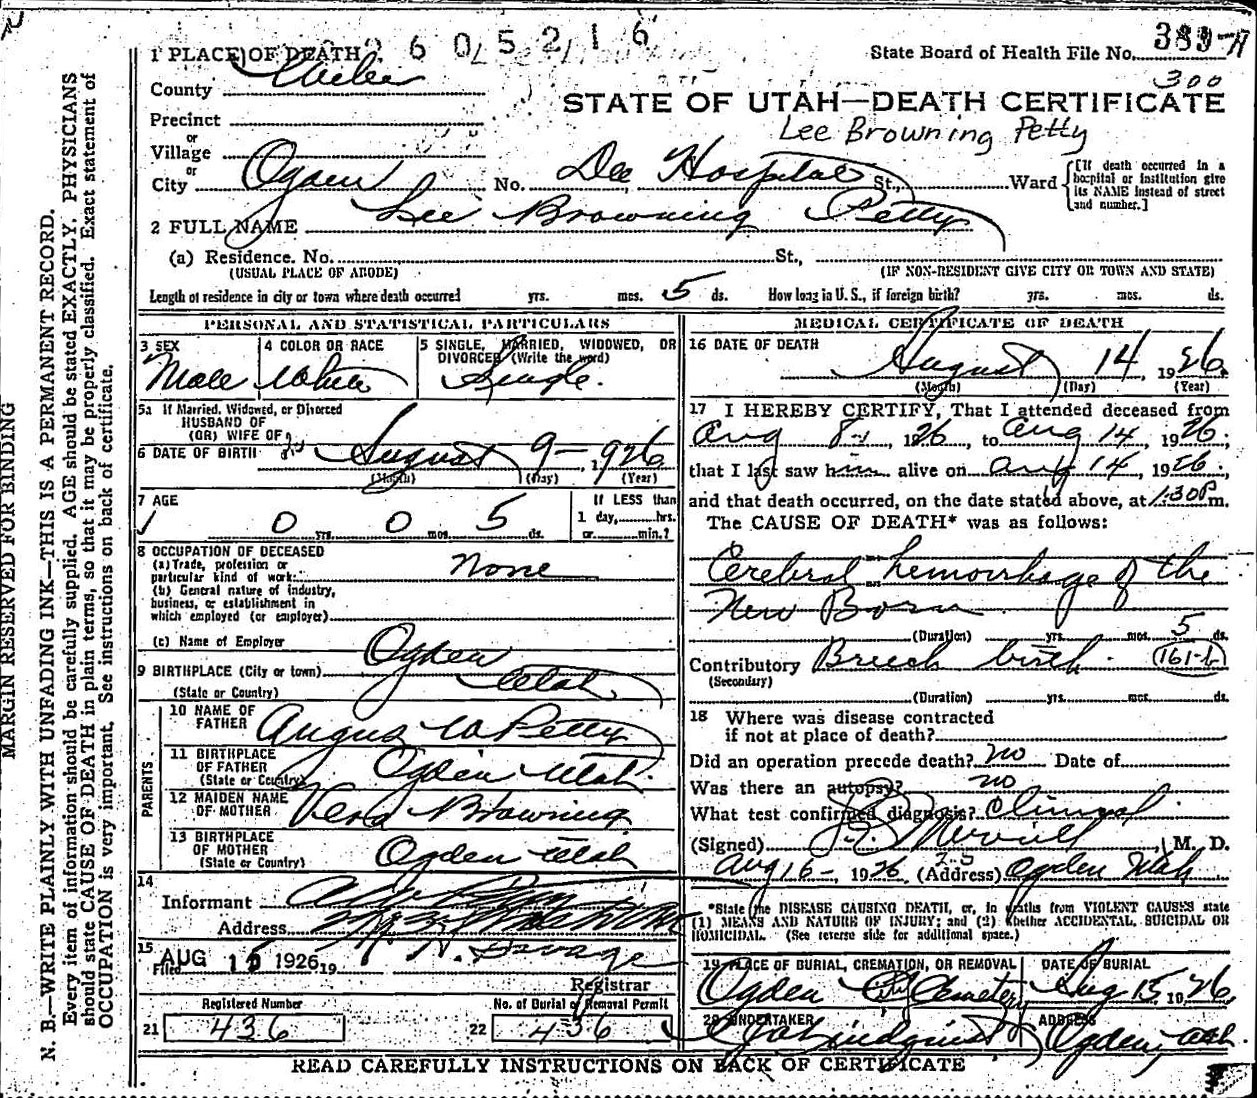 2605216
State Board of Health File No. 383-A
300
1 PLACE OF DEATH
County Weber
STATE OF UTAH—DEATH CERTIFICATE
Lee Browning Petty
Precinct
or
Village
or
City Ogden No. Dee Hospital St., Ward
[If death occurred in a
hospital or institution give
its NAME instead of street
and number.]
2 FULL NAME Lee Browning Petty
(a) Residence. No. St.,
(USUAL PLACE OF ABODE) (IF NON-RESIDENT GIVE CITY OR TOWN AND STATE)
Length of residence in city or town where death occurred yrs. mos. 5 ds. How long in U. S., if foreign birth? yrs. mos. ds.
PERSONAL AND STATISTICAL PARTICULARS
3 SEX
Male
4 COLOR OR RACE
White
5 SINGLE, MARRIED, WIDOWED, OR
DIVORCED (Write the word)
Single.
5a If Married, Widowed, or Divorced
HUSBAND OF
(OR) WIFE OF
6 DATE OF BIRTH August 9 - 1926
(Month) (Day) (Year)
7 AGE
0 yrs. 0 mos. 5 ds.
If LESS than
1 day, hrs.
or min.?
8 OCCUPATION OF DECEASED
(a) Trade, profession or
particular kind of work None
(b) General nature of industry,
business, or establishment in
which employed (or employer)
(c) Name of Employer
9 BIRTHPLACE (City or town) Ogden
(State or Country) Utah
PARENTS
10 NAME OF
FATHER Angus W Petty
11 BIRTHPLACE
OF FATHER
(State or Country) Ogden Utah.
12 MAIDEN NAME
OF MOTHER Vera Browning
13 BIRTHPLACE
OF MOTHER
(State or Country) Ogden Utah
14
Informant
Address
15
Filed AUG 15 1926 19
Savage
Registrar
Registered Number
21 436
No. of Burial or Removal Permit
22 436
MEDICAL CERTIFICATE OF DEATH
16 DATE OF DEATH
August 14 1926.
(Month) (Day) (Year)
17 I HEREBY CERTIFY, That I attended deceased from
Aug 1926, to Aug 14, 1926;
that I last saw him alive on Aug 14, 1926.
and that death occurred, on the date stated above, at 1:30 P m.
The CAUSE OF DEATH* was as follows:
Cerebral hemorrhage of the
New Born
(Duration) yrs. mos. 5 ds.
Contributory Breech birth. 161-b
(Secondary)
(Duration) yrs. mos. ds.
18 Where was disease contracted
if not at place of death?
Did an operation precede death? no Date of
Was there an autopsy? no
What test confirmed diagnosis? Clinical.
(Signed) Merrill, M. D.
Aug 16-, 1926 (Address) Ogden Utah
*State the DISEASE CAUSING DEATH, or, in deaths from VIOLENT CAUSES state
(1) MEANS AND NATURE OF INJURY; and (2) whether ACCIDENTAL, SUICIDAL OR
HOMICIDAL. (See reverse side for additional space.)
19 PLACE OF BURIAL, CREMATION, OR REMOVAL
Ogden City Cemetery
DATE OF BURIAL
Aug 15 1926
20 UNDERTAKER
Lindquist
ADDRESS
Ogden, Utah.
READ CAREFULLY INSTRUCTIONS ON BACK OF CERTIFICATE
MARGIN RESERVED FOR BINDING
N. B.—WRITE PLAINLY WITH UNFADING INK—THIS IS A PERMANENT RECORD.
Every item of information should be carefully supplied. AGE should be stated EXACTLY. PHYSICIANS
should state CAUSE OF DEATH in plain terms, so that it may be properly classified. Exact statement of
OCCUPATION is very important. See instructions on back of certificate.